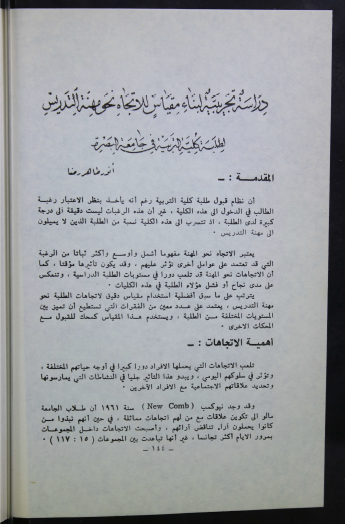 دراسة تجريبية لبناء مقياس للاتجاه نحو مهنة التدريس
لطلبة كلية التربية في جامعة البصرة
أنور طاهر رضا
المقدمة : ــ
ان نظام قبول طلبة كلية التربية رغم أنه يأخذ بنظر الاعتبار رغبة
الطالب في الدخول الى هذه الكلية ، غير أن هذه الرغبات ليست دقيقة الى درجة
كبيرة لدى الطلبة ، اذ تتسرب الى هذه الكلية نسبة من الطلبة الذين لا يميلون
الى مهنة التدريس ٠
يعتبر الاتجاه نحو المهنة مفهوما أشمل وأوسع وأكثر ثباتا من الرغبة
التي قد تعتمد على عوامل أخرى تؤثر عليهم ، وقد يكون تأثيرها مؤقتا ، كما
أن الاتجاهات نحو المهنة قد تلعب دورا في مستويات الطلبة الدراسية ، وتنعكس
على مدى نجاح أو فشل هؤلاء الطلبة في هذه الكليات ٠
يترتب على ما سبق أفضلية استخدام مقياس دقيق لاتجاهات الطلبة نحو
مهنة التدريس ، يعتمد على عدد معين من الفقرات التي تستطيع أن تميز بين
المستويات المختلفة من الطلبة ، ويستخدم هذا المقياس كمحك للقبول مع
المحكات الاخرى ٠
أهمية الاتجاهات : ــ
تلعب الاتجاهات التي يحملها الافراد دورا كبيرا في أوجه حياتهم المختلفة ،
وتؤثر في سلوكهم اليومي ، ويبدو هذا التأثير جليا في النشاطات التي يمارسونها
وتحديد علاقاتهم الاجتماعية مع الافراد الآخرين ٠
وقد وجد نيوكمب ( New Comb ) سنة ١٩٦١ أن طلاب الجامعة
مالو الى تكوين علاقات مع من لهم اتجاهات مماثلة ، في حين أنهم نبذوا من
كانوا يحملون آراء تناقض آرائهم ، وأصبحت الاتجاهات داخل المجموعات
بمرور الايام أكثر تجانسا ، غير أنها تباعدت بين المجموعات ( ١٥ : ١١٧ ) ٠
ــ ١٤١ ــ